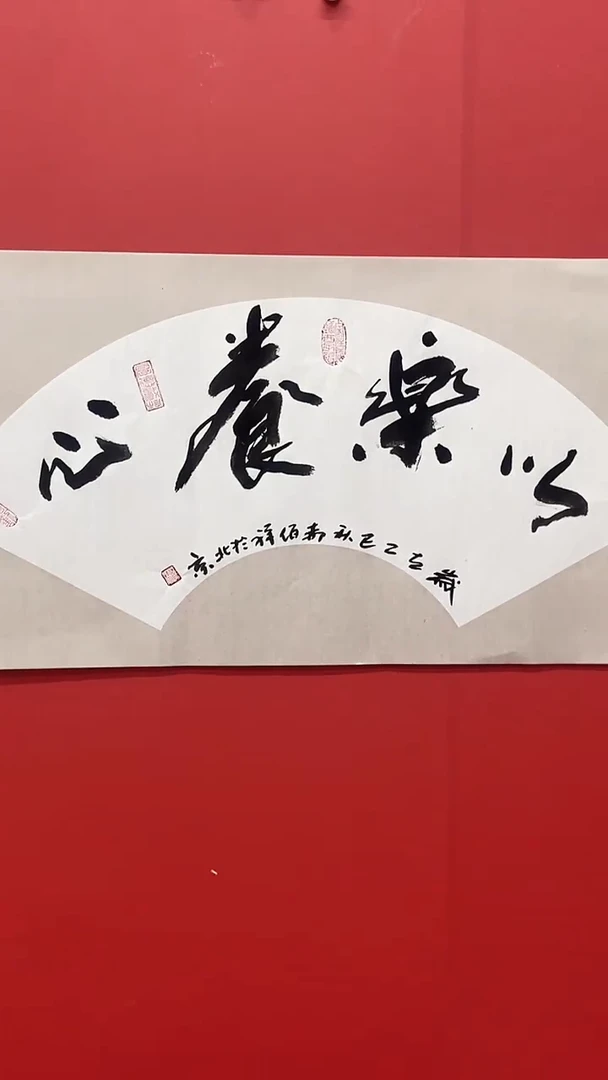 以樂養心
歲在乙巳秋尚佰祥於北京